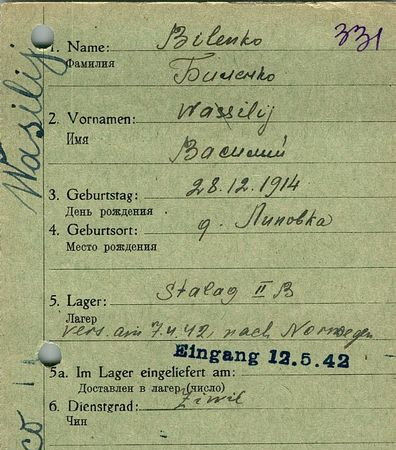 331
1. Name: Bilenko
Фамилия
Биленко
2. Vornamen: Wassilij
Имя
Василий
3. Geburtstag: 28.12.1914
День рождения
4. Geburtsort: д. Липовка
Место рождения
5. Lager: Stalag II B
Лагер
vers. am 7.4.42 nach Norwegen
Eingang 12.5.42
5a. Im Lager eingeliefert am:
Доставлен в лагер (число)
6. Dienstgrad: Ziwil
Чин
Wassilij